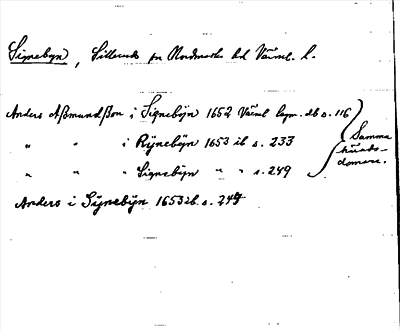 Signebyn, Silleruds sn Nordmarks hd Värml. l.
Anders Aßmundßon i Signebÿn 1652 Värml lagm. db s. 116
" " i Rÿnebÿn 1653 ib s. 233
" " " Signebÿn " " s. 249
Samma
härads-
domare.
Anders i Sÿnebÿn 1653 ib. s. 249